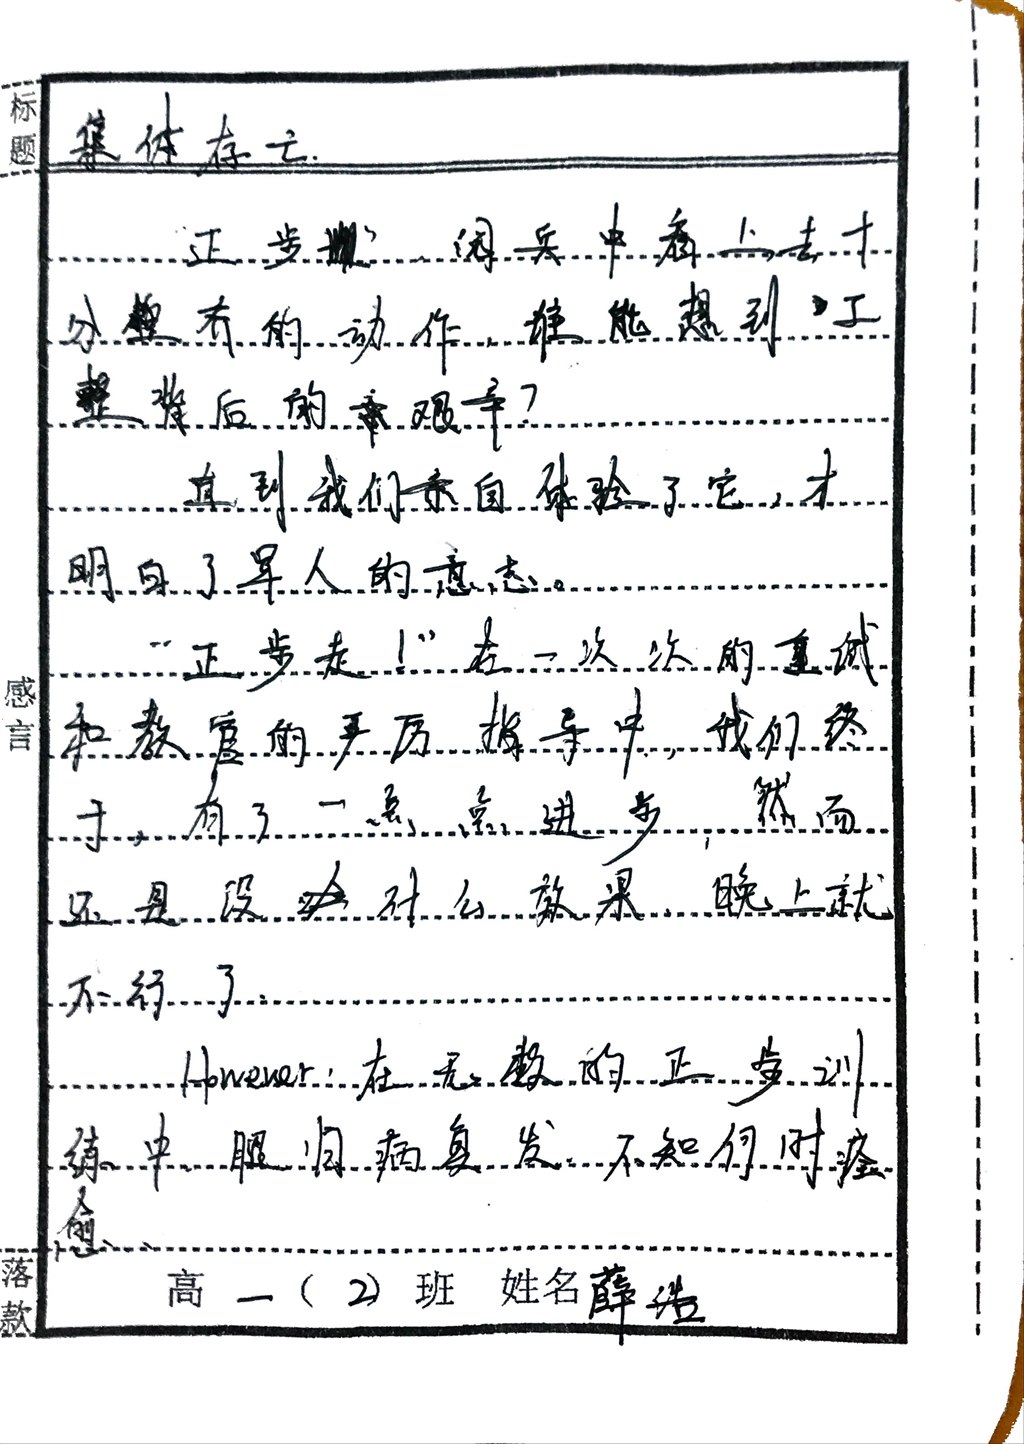 标题
集体存亡.
正步 , 阅兵中看上去十
分整齐的动作,谁能想到 工
整背后的艰辛?
直到我们亲自体验了它,才
明白了军人的意志。
“正步走!”在一次次的重试
和教官的严厉指导中,我们终
于,有了一点点进步,然而
还是没什么效果,晚上就
不行了.
感言
However,在无数的正步训
练中,腿 病复发,不知何时痊
愈.
落款
高一(2)班 姓名薛浩